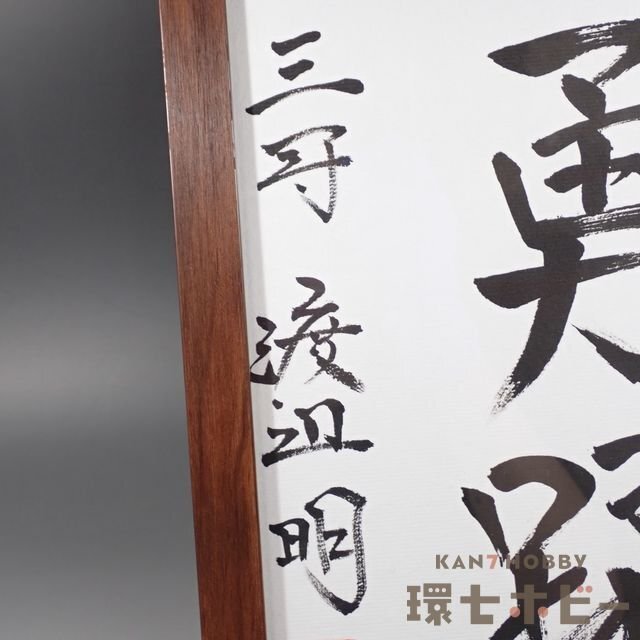 勇
三冠 渡辺明
KAN7HOBBY
環七ホビー